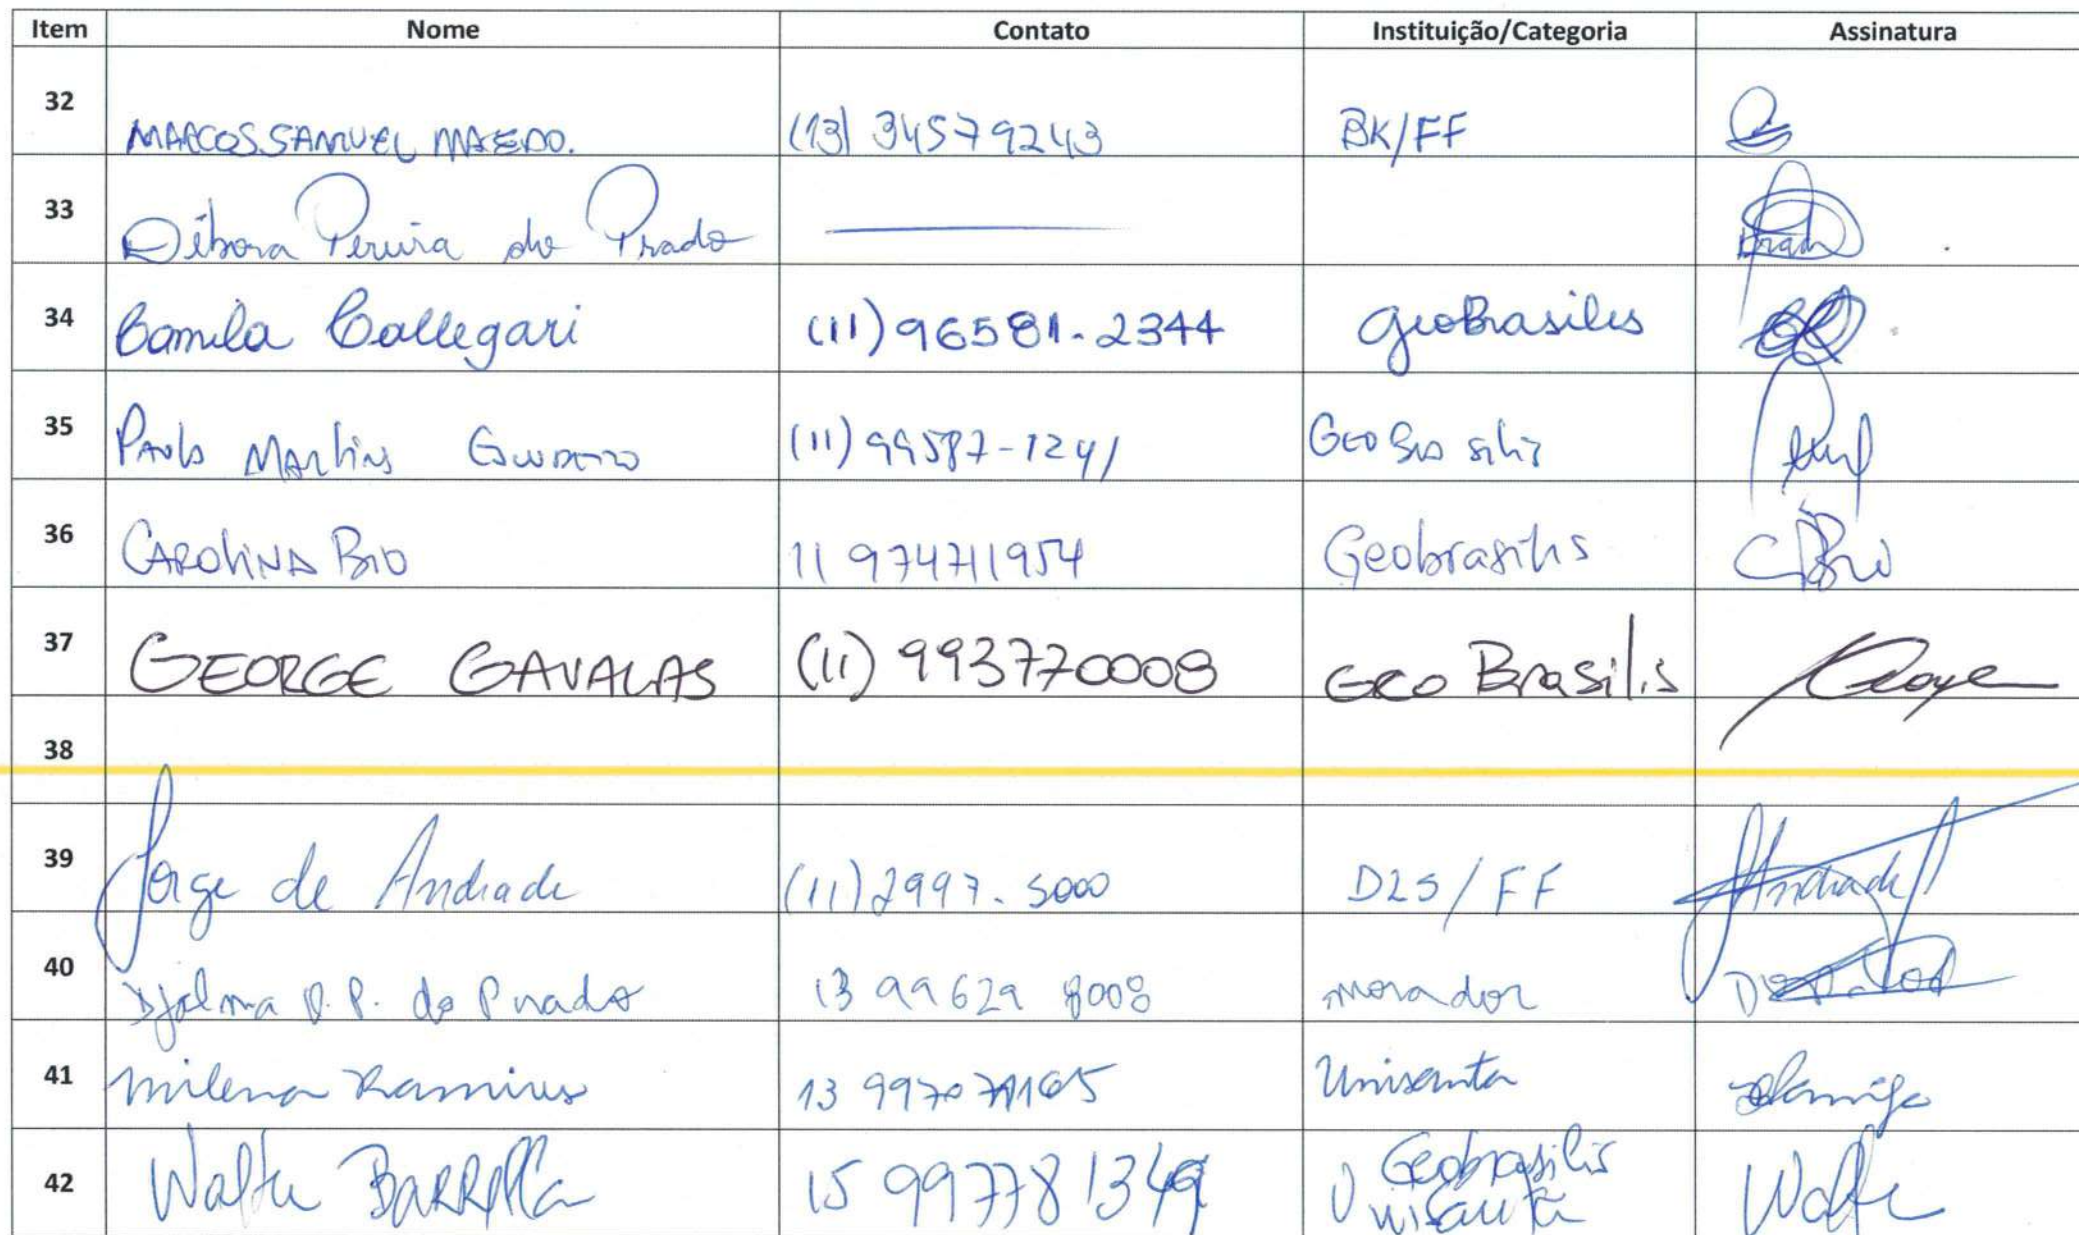 Item Nome Contato Instituição/Categoria Assinatura
32 MARCOS SAMUEL (13) 34579243 BK/FF
33 Débora Pereira do Prado
34 Camila Callegari (11) 96581-2344 GeoBrasilis
35 Paulo Martins (11) 99587-1241
36 CAROLINA BIO 11 974711954 Geobrasilis CBio
37 GEORGE GAVALAS (11) 993770008 GEO Brasilis George
38
39 Jorge de Andrade (11) 2997.5000 DLS/FF Andrade
40 Djalma P.P. do Prado 13 99629 8008 morador
41 Milena Ramires 13 Unisanta
42 Walter BARRELLA 15 997781349 Geobrasilis
Unisanta